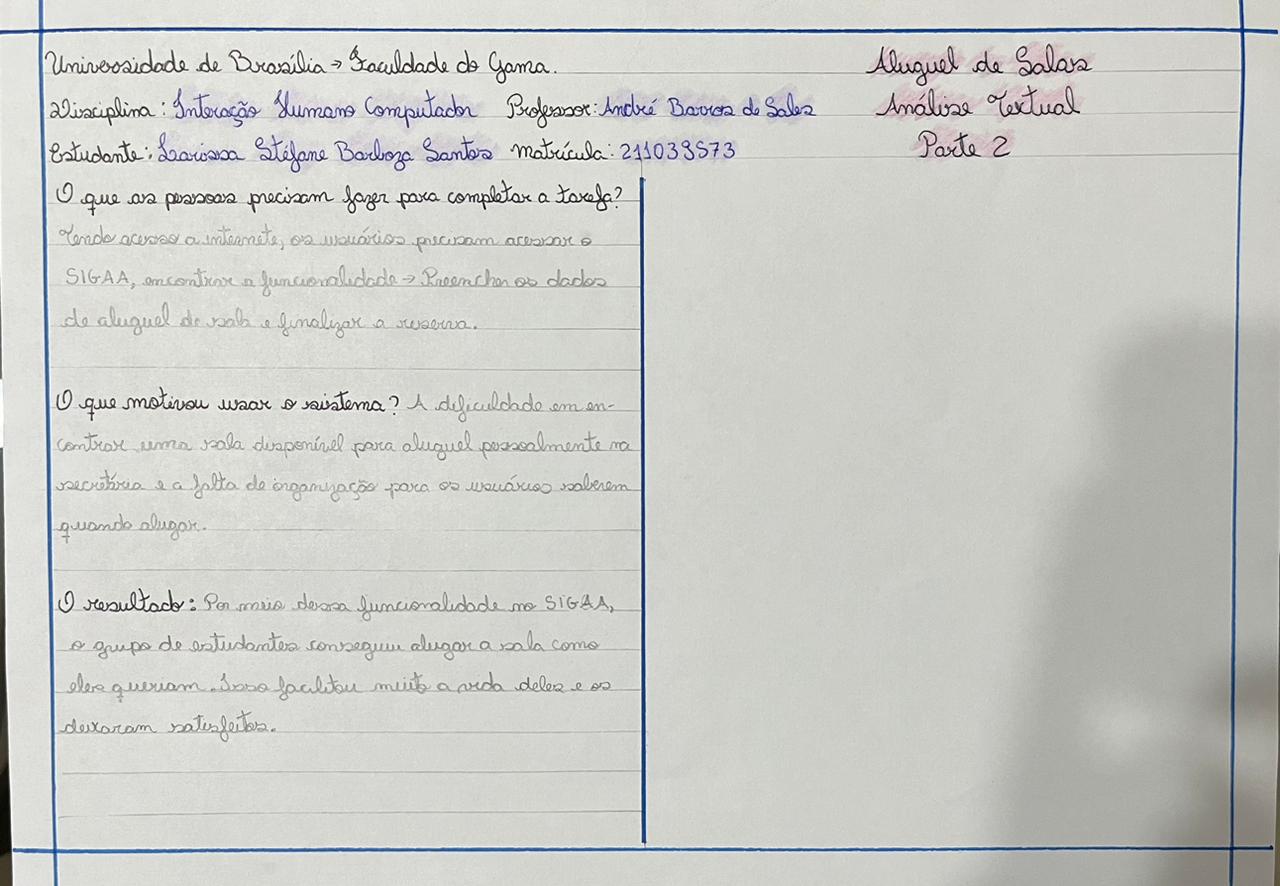 Universidade de Brasília → Faculdade do Gama.
Aluguel de Salas
Disciplina: Interação Humano Computador Professor: André Barros de Sales
Análise Textual
Estudante: Larissa Stéfane Barboza Santos Matrícula: 211039573
Parte 2
O que as pessoas precisam fazer para completar a tarefa?
Tendo acesso a internete, os usuários precisam acessar o
SIGAA, encontrar a funcionalidade → Preencher os dados
de aluguel de sala e finalizar a reserva.
O que motivou usar o sistema? A dificuldade em en-
contrar uma sala disponível para aluguel pessoalmente na
secretária e a falta de organização para os usuários saberem
quando alugar.
O resultado: Por meio dessa funcionalidade no SIGAA,
o grupo de estudantes conseguiu alugar a sala como
eles queriam. Isso facilitou muito a vida deles e os
deixaram satisfeitos.